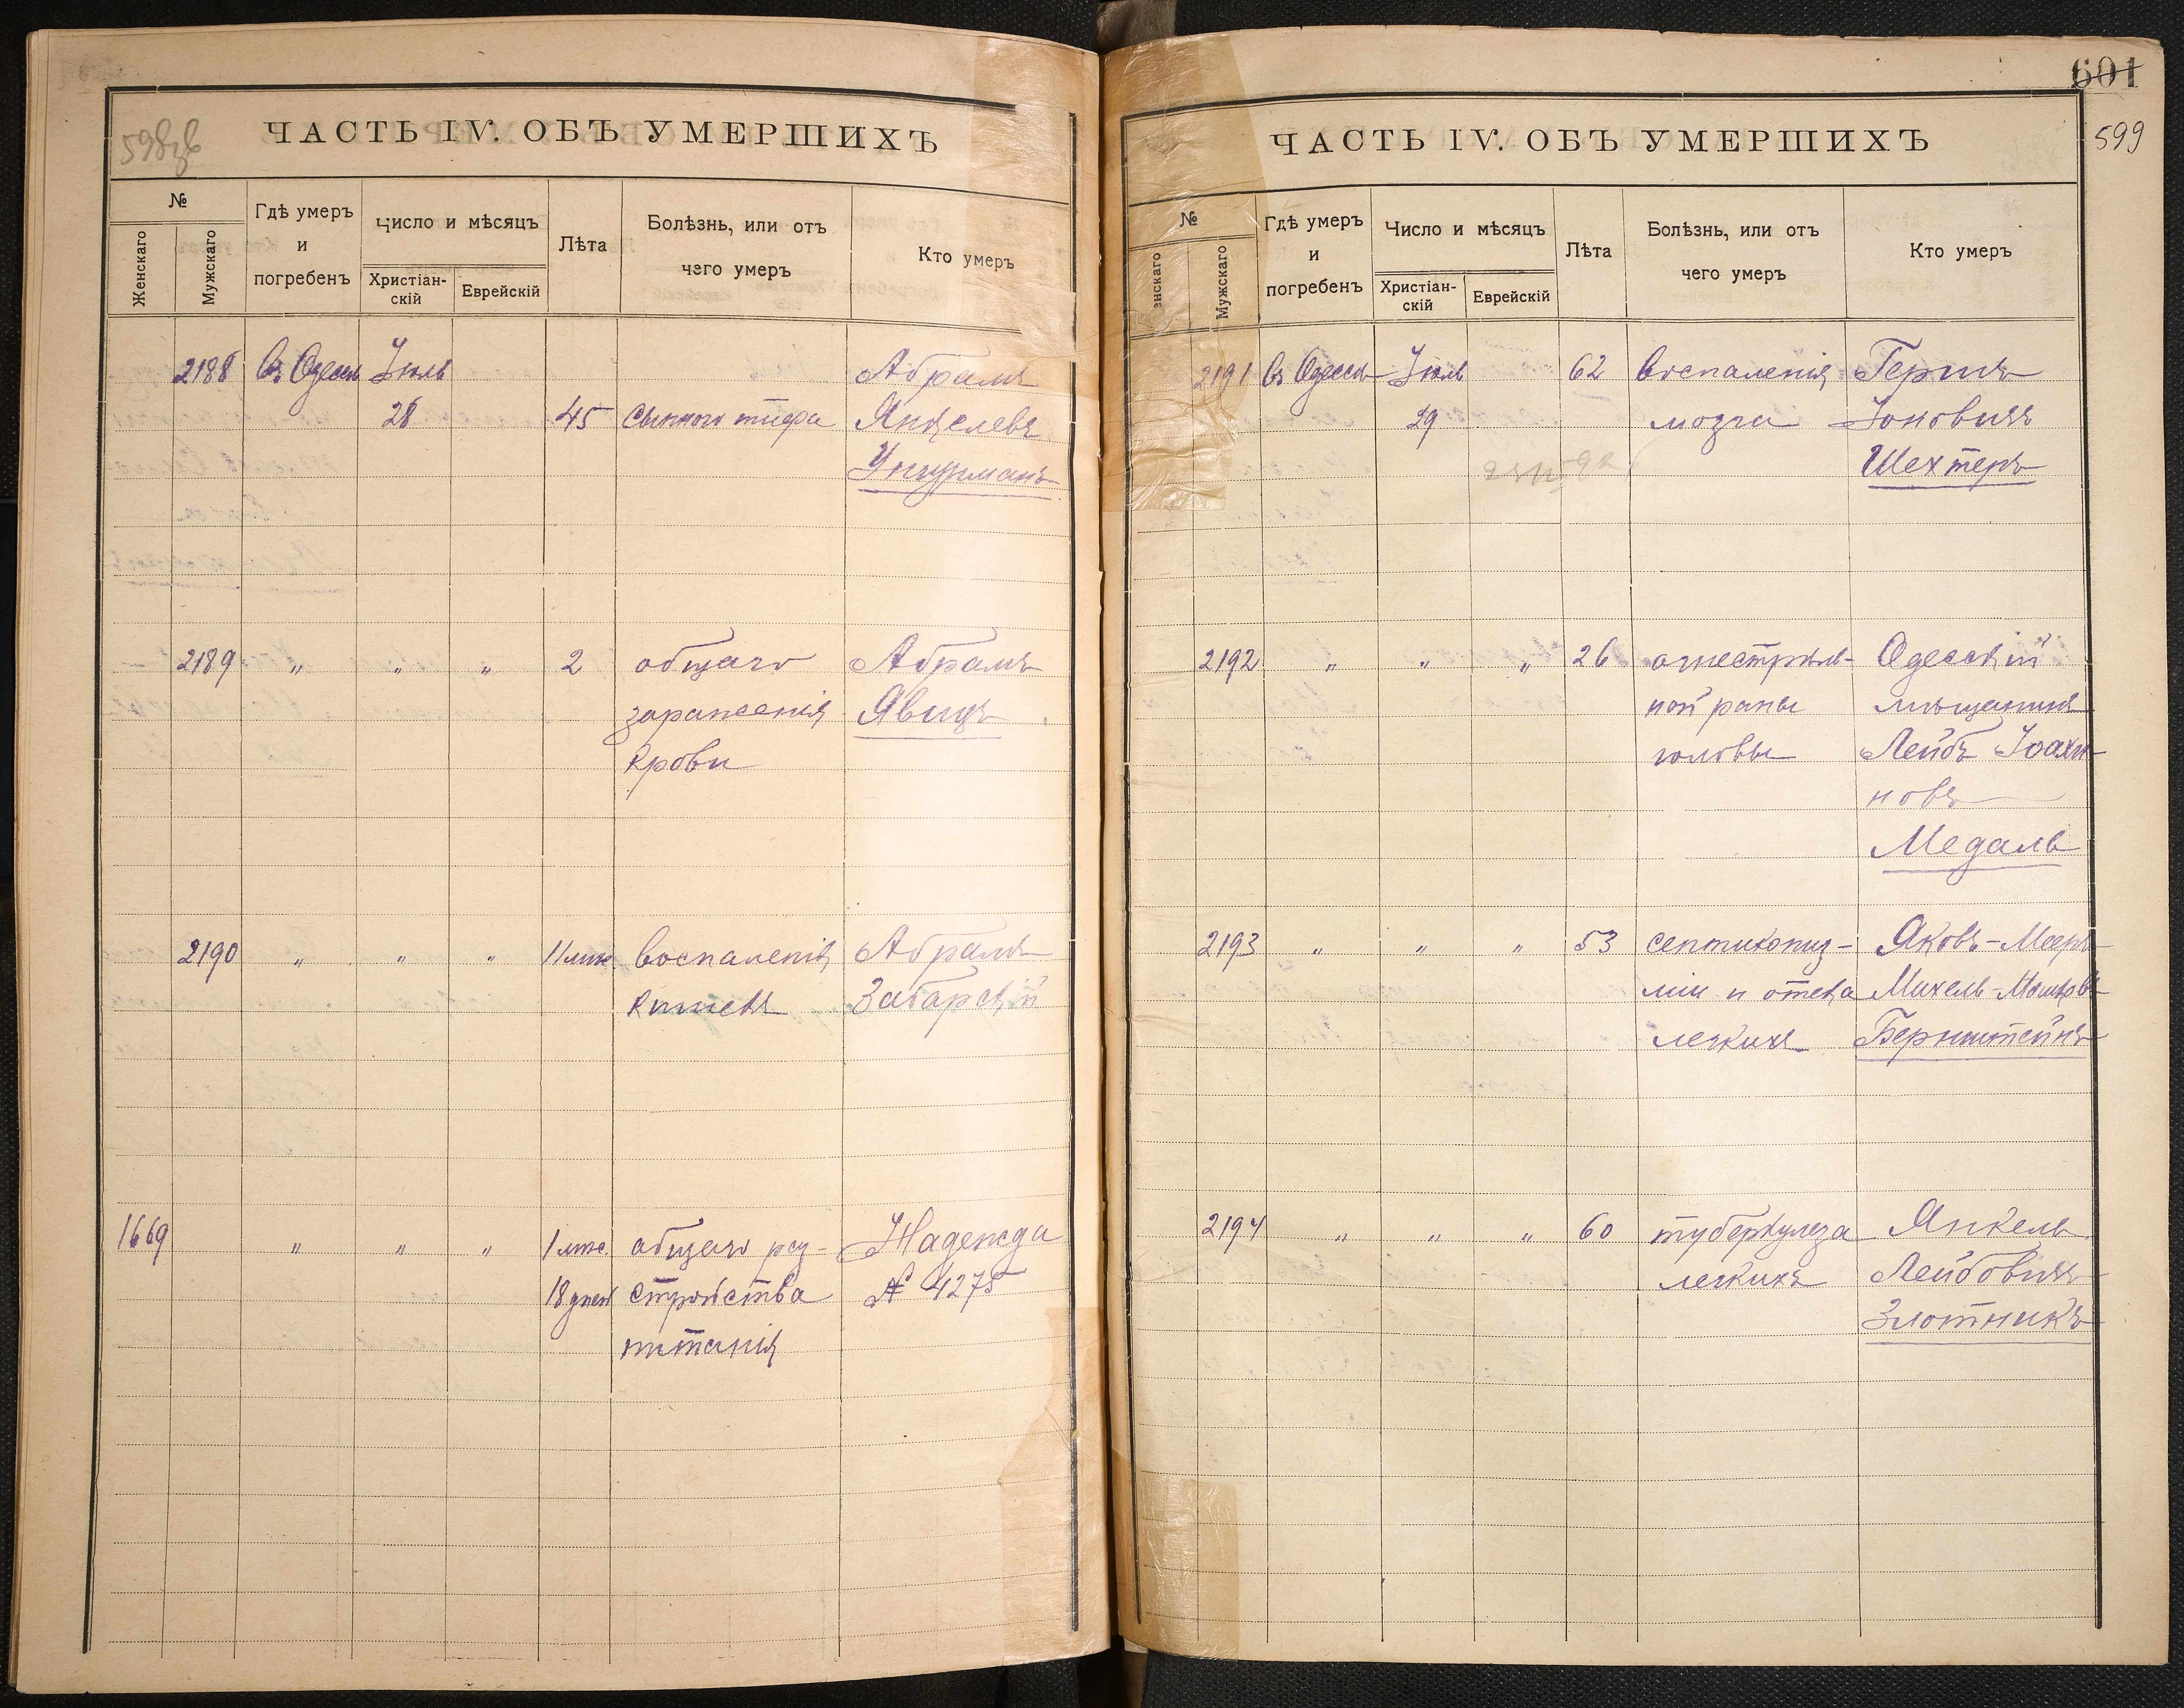 598об
ЧАСТЬ IV. ОБЪ УМЕРШИХЪ
№
Женскаго
Мужскаго
Гдѣ умеръ
и
погребенъ
Число и мѣсяцъ
Христіан-
скій
Еврейскій
Лѣта
Болѣзнь, или отъ
чего умеръ
Кто умеръ
2188 Въ Одессѣ Іюль Абрамъ
28 45 сыпного тифа Янкелевъ
Унгурманъ
2189 „ „ „ 2 общаго Абрамъ
зараженія Явицъ
крови
2190 „ „ „ 11 мѣс. воспаленія Абрамъ
кишекъ Забарскій
1669 „ „ „ 1 мѣс. общаго раз- Надежда
18 дней стройства № 4275
питанія
601
599
ЧАСТЬ IV. ОБЪ УМЕРШИХЪ
№
енскаго
Мужскаго
Гдѣ умеръ
и
погребенъ
Число и мѣсяцъ
Христіан-
скій
Еврейскій
Лѣта
Болѣзнь, или отъ
чего умеръ
Кто умеръ
2191 Въ Одессѣ Іюль 62 воспаленія Гершъ
29 мозга Іоновичъ
Шехтеръ
2192 „ „ „ 26 огнестрѣль- Одесскій
ной раны мѣщанинъ
головы Лейбъ Іоахи-
новъ
Медаль
2193 „ „ „ 53 септикопіэ- Яковъ-Мееръ
міи и отека Михель-Мошковъ
легкихъ Бернштейнъ
2194 „ „ „ 60 туберкулеза Янкель
легкихъ Лейбовичъ
Злотникъ